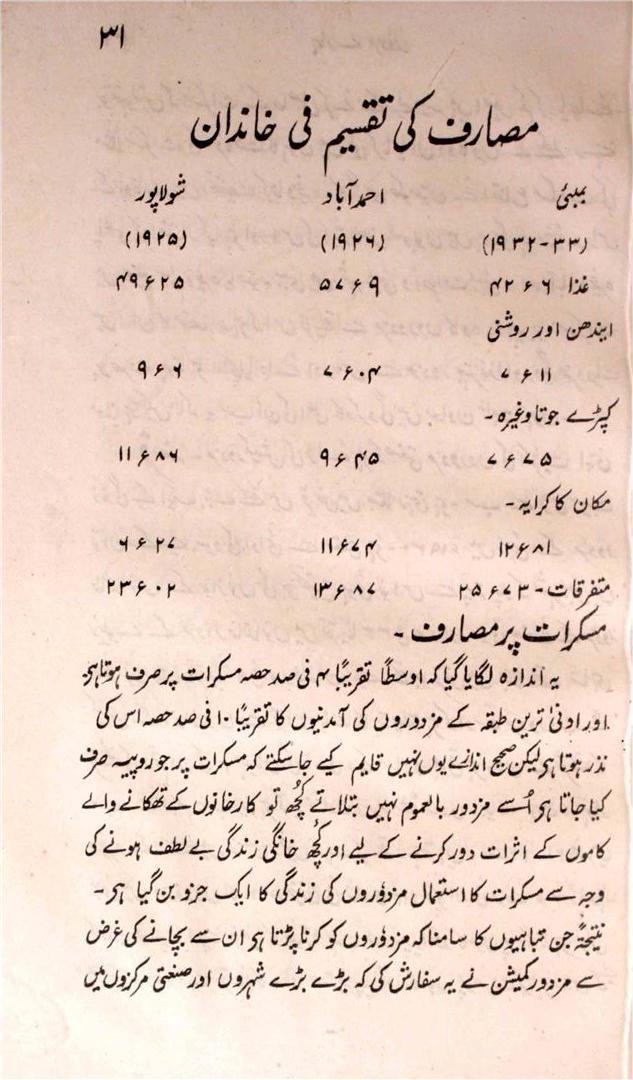 ۳۱
مصارف کی تقسیم فی خاندان
بمبئی احمدآباد شولاپور
(۱۹۳۲-۳۳) (۱۹۲۶) (۱۹۲۵)
غذا ۴۲ء۶ ۵۷ء۹ ۴۹ء۲۵
ایندھن اور روشنی
۷ء۱۱ ۷ء۰۴ ۹ء۶
کپڑے جوتا وغیرہ ۔
۷ء۷۵ ۹ء۴۵ ۱۱ء۸۶
مکان کا کرایہ ۔
۱۲ء۸۱ ۱۱ء۷۴ ۶ء۲۷
متفرقات - ۲۵ء۷۳ ۱۳ء۸۷ ۲۳ء۰۲
مسکرات پر مصارف ۔
یہ اندازہ لگایا گیا کہ اوسطاً تقریباً ۴ فی صد حصہ مسکرات پر صرف ہوتا ہی۔
اور ادنیٰ ترین طبقہ کے مزدوروں کی آمدنیوں کا تقریباً ۱۰ فی صد حصہ اس کی
نذر ہوتا ہی لیکن صحیح اندازے یوں نہیں قایم کیے جاسکتے کہ مسکرات پر جو روپیہ صرف
کیا جاتا ہی اُسے مزدور بالعموم نہیں بتلاتے کُچھ تو کارخانوں کے تھکانے والے
کاموں کے اثرات دور کرنے کے لیے اور کُچھ خانگی زندگی بے لطف ہونے کی
وجہ سے مسکرات کا استعمال مزدوروں کی زندگی کا ایک جزو بن گیا ہی ۔
نتیجۃً جن تباہیوں کا سامنا کہ مزدوروں کو کرنا پڑتا ہی ان سے بچانے کی غرض
سے مزدور کمیشن نے یہ سفارش کی کہ بڑے بڑے شہروں اور صنعتی مرکزوں میں